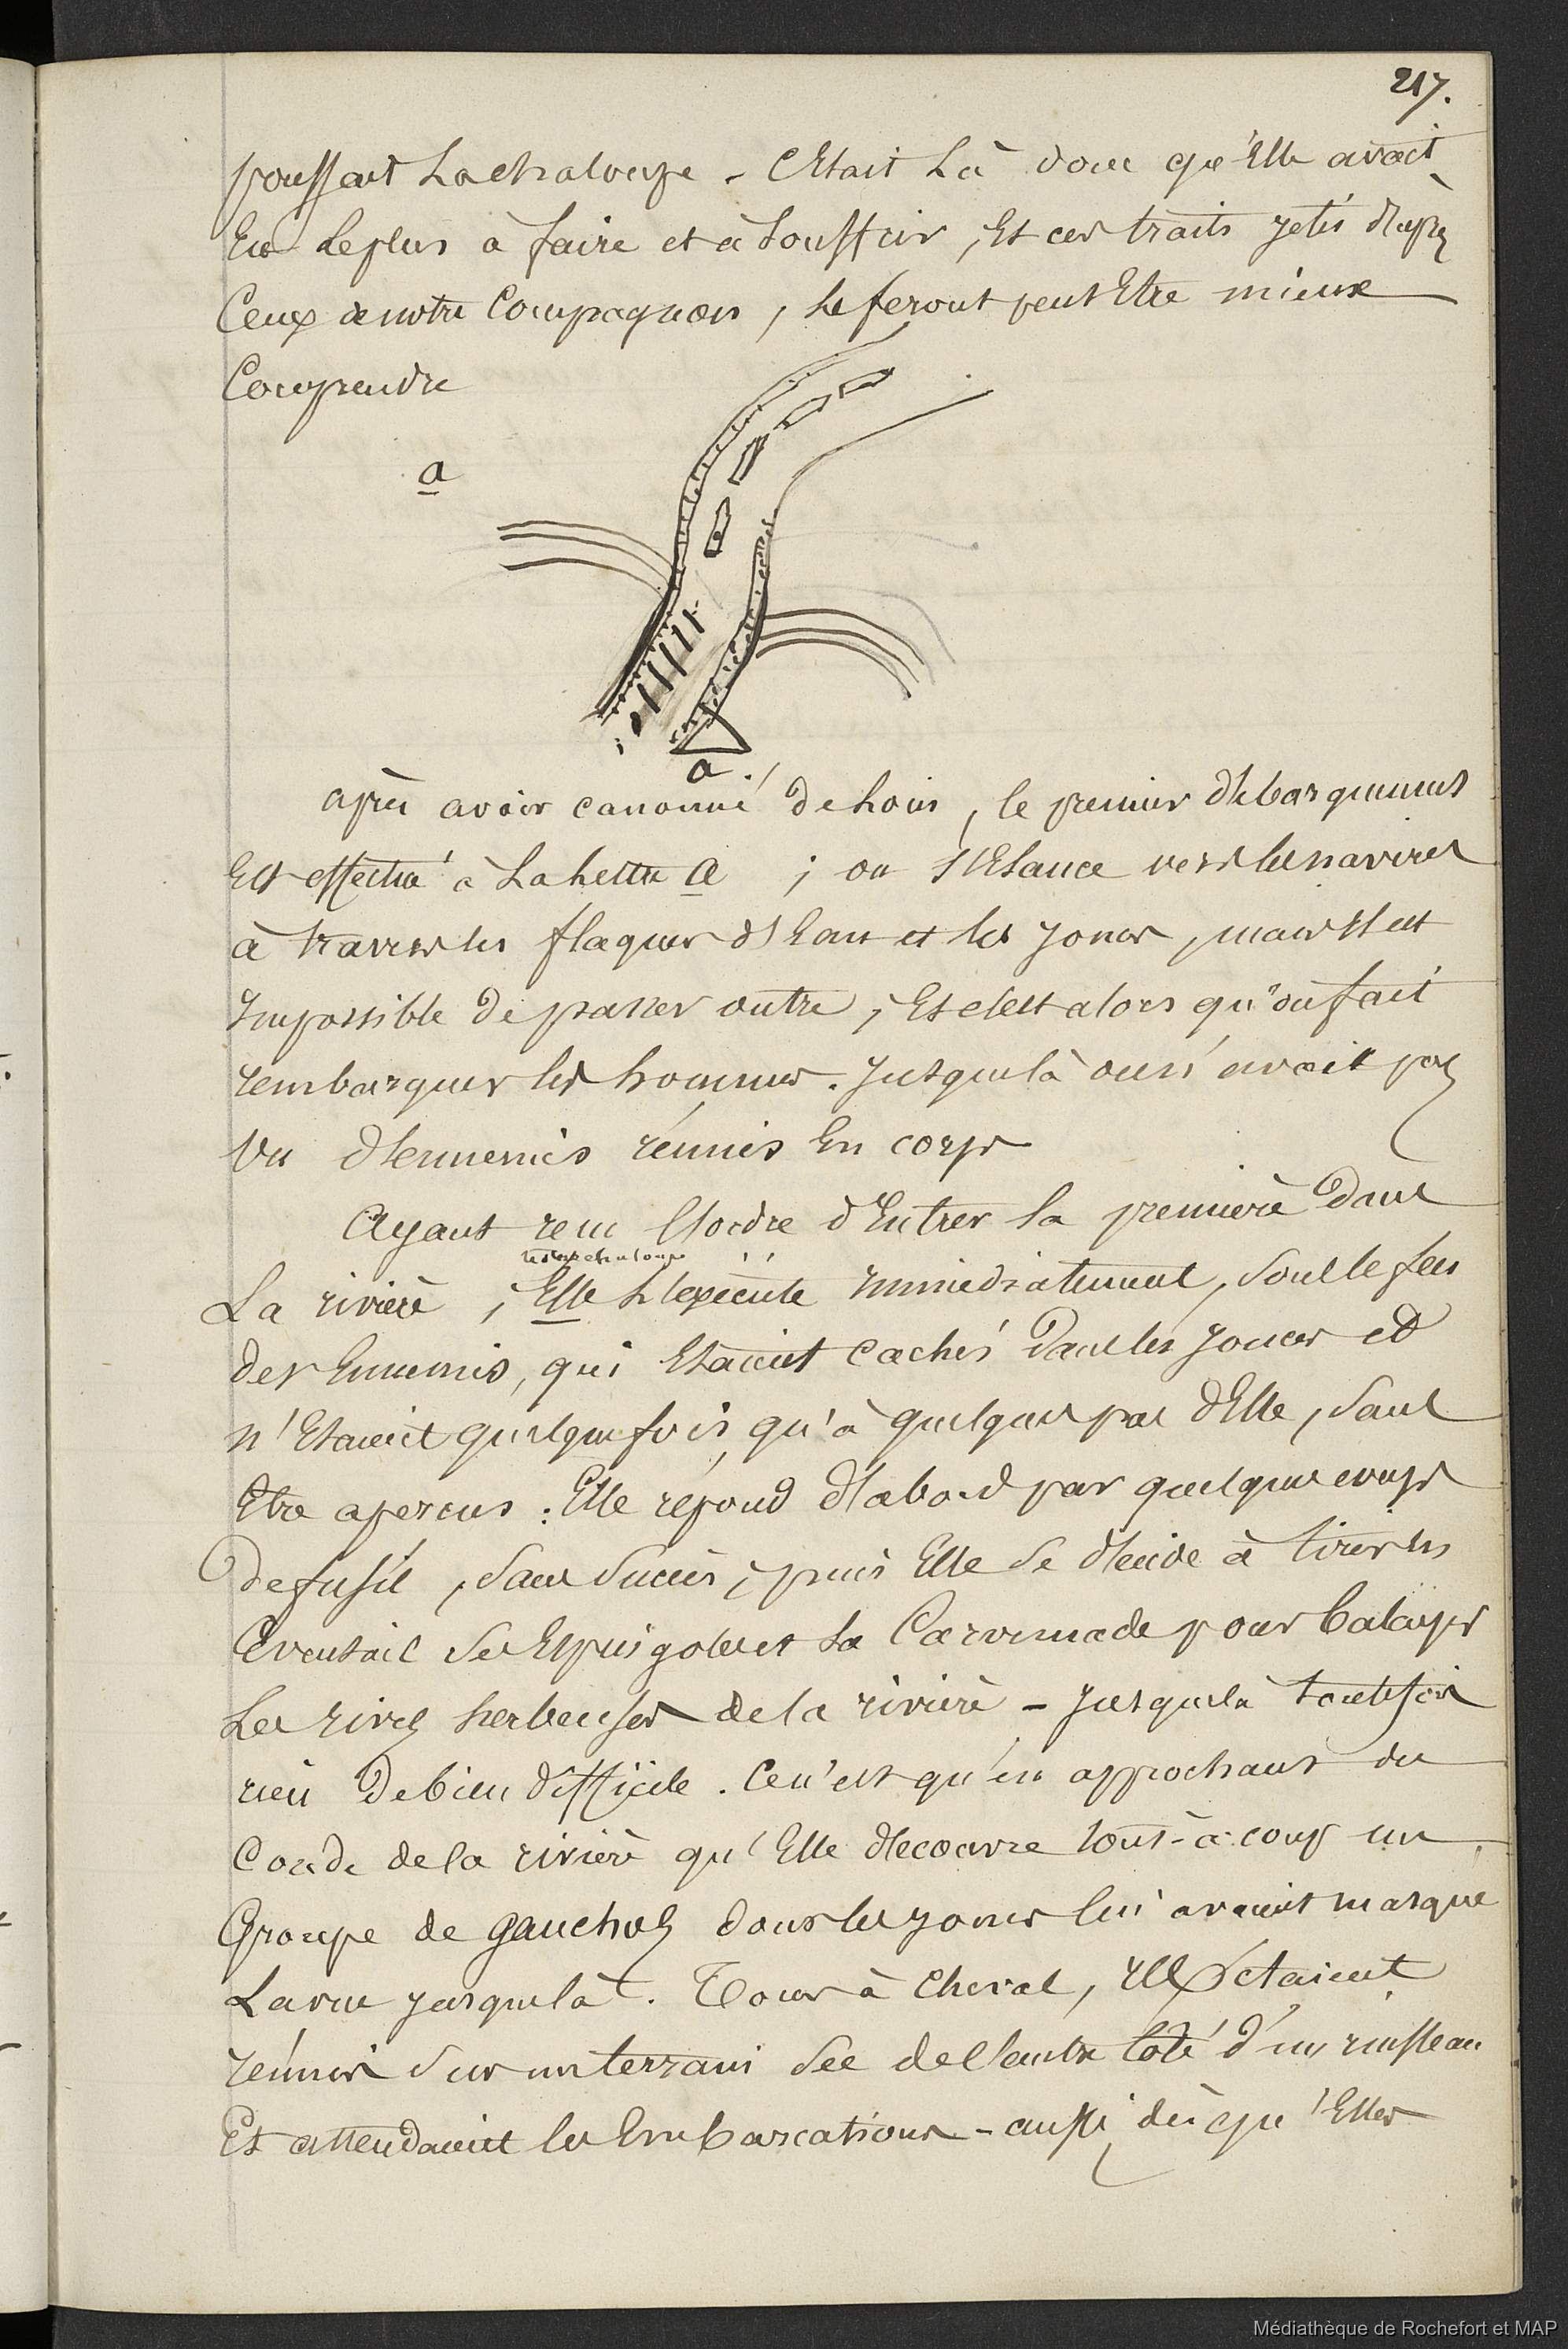 217.
poussait la chaloupe - C'Etait là donc qu'Elle avait
Eu le plus à faire et à souffrir, Et ces traits jetés d'après
Ceux de notre Compagnon, le feront peut Etre mieux
Comprendre
a
a.
après avoir canonné de loin, le premier débarquement
Est effectué à la lettre a ; on s'Elance vers les navires
à travers les flaques d'Eau et les joncs, mais il est
Impossible de passer outre, Et c'est alors qu'on fait
rembarquer les hommes. Jusque là on n'avait pas
vu d'Ennemis réunis En corps
Ayant reçu l'ordre d'Entrer la première dans
La rivière, Elle l'exécute immédiatement, sous le feu
des Ennemis, qui Etaient cachés dans les joncs et
n'Etaient quelquefois qu'à quelques pas d'Elle, sans
Etre apercus : Elle répond d'abord par quelques coups
de fusil, sans succès, puis Elle se décide à tirer en
Eventail ses Espingoles et la Caronnade pour balayer
Les rives herbeuses de la rivière - Jusque là toutefois
rien de bien difficile. Ce n'est qu'en approchant du
Coude de la rivière qu'Elle découvre tout-à-coup un
Groupe de gauchos dont les joncs lui avaient masqué
La vue jusque là. Tous à cheval, Ils s'étaient
réunis sur un terrain sec de l'autre côté d'un ruisseau
Et attendaient les Embarcations - aussi dès qu'Elles
Médiathèque de Rochefort et MAP